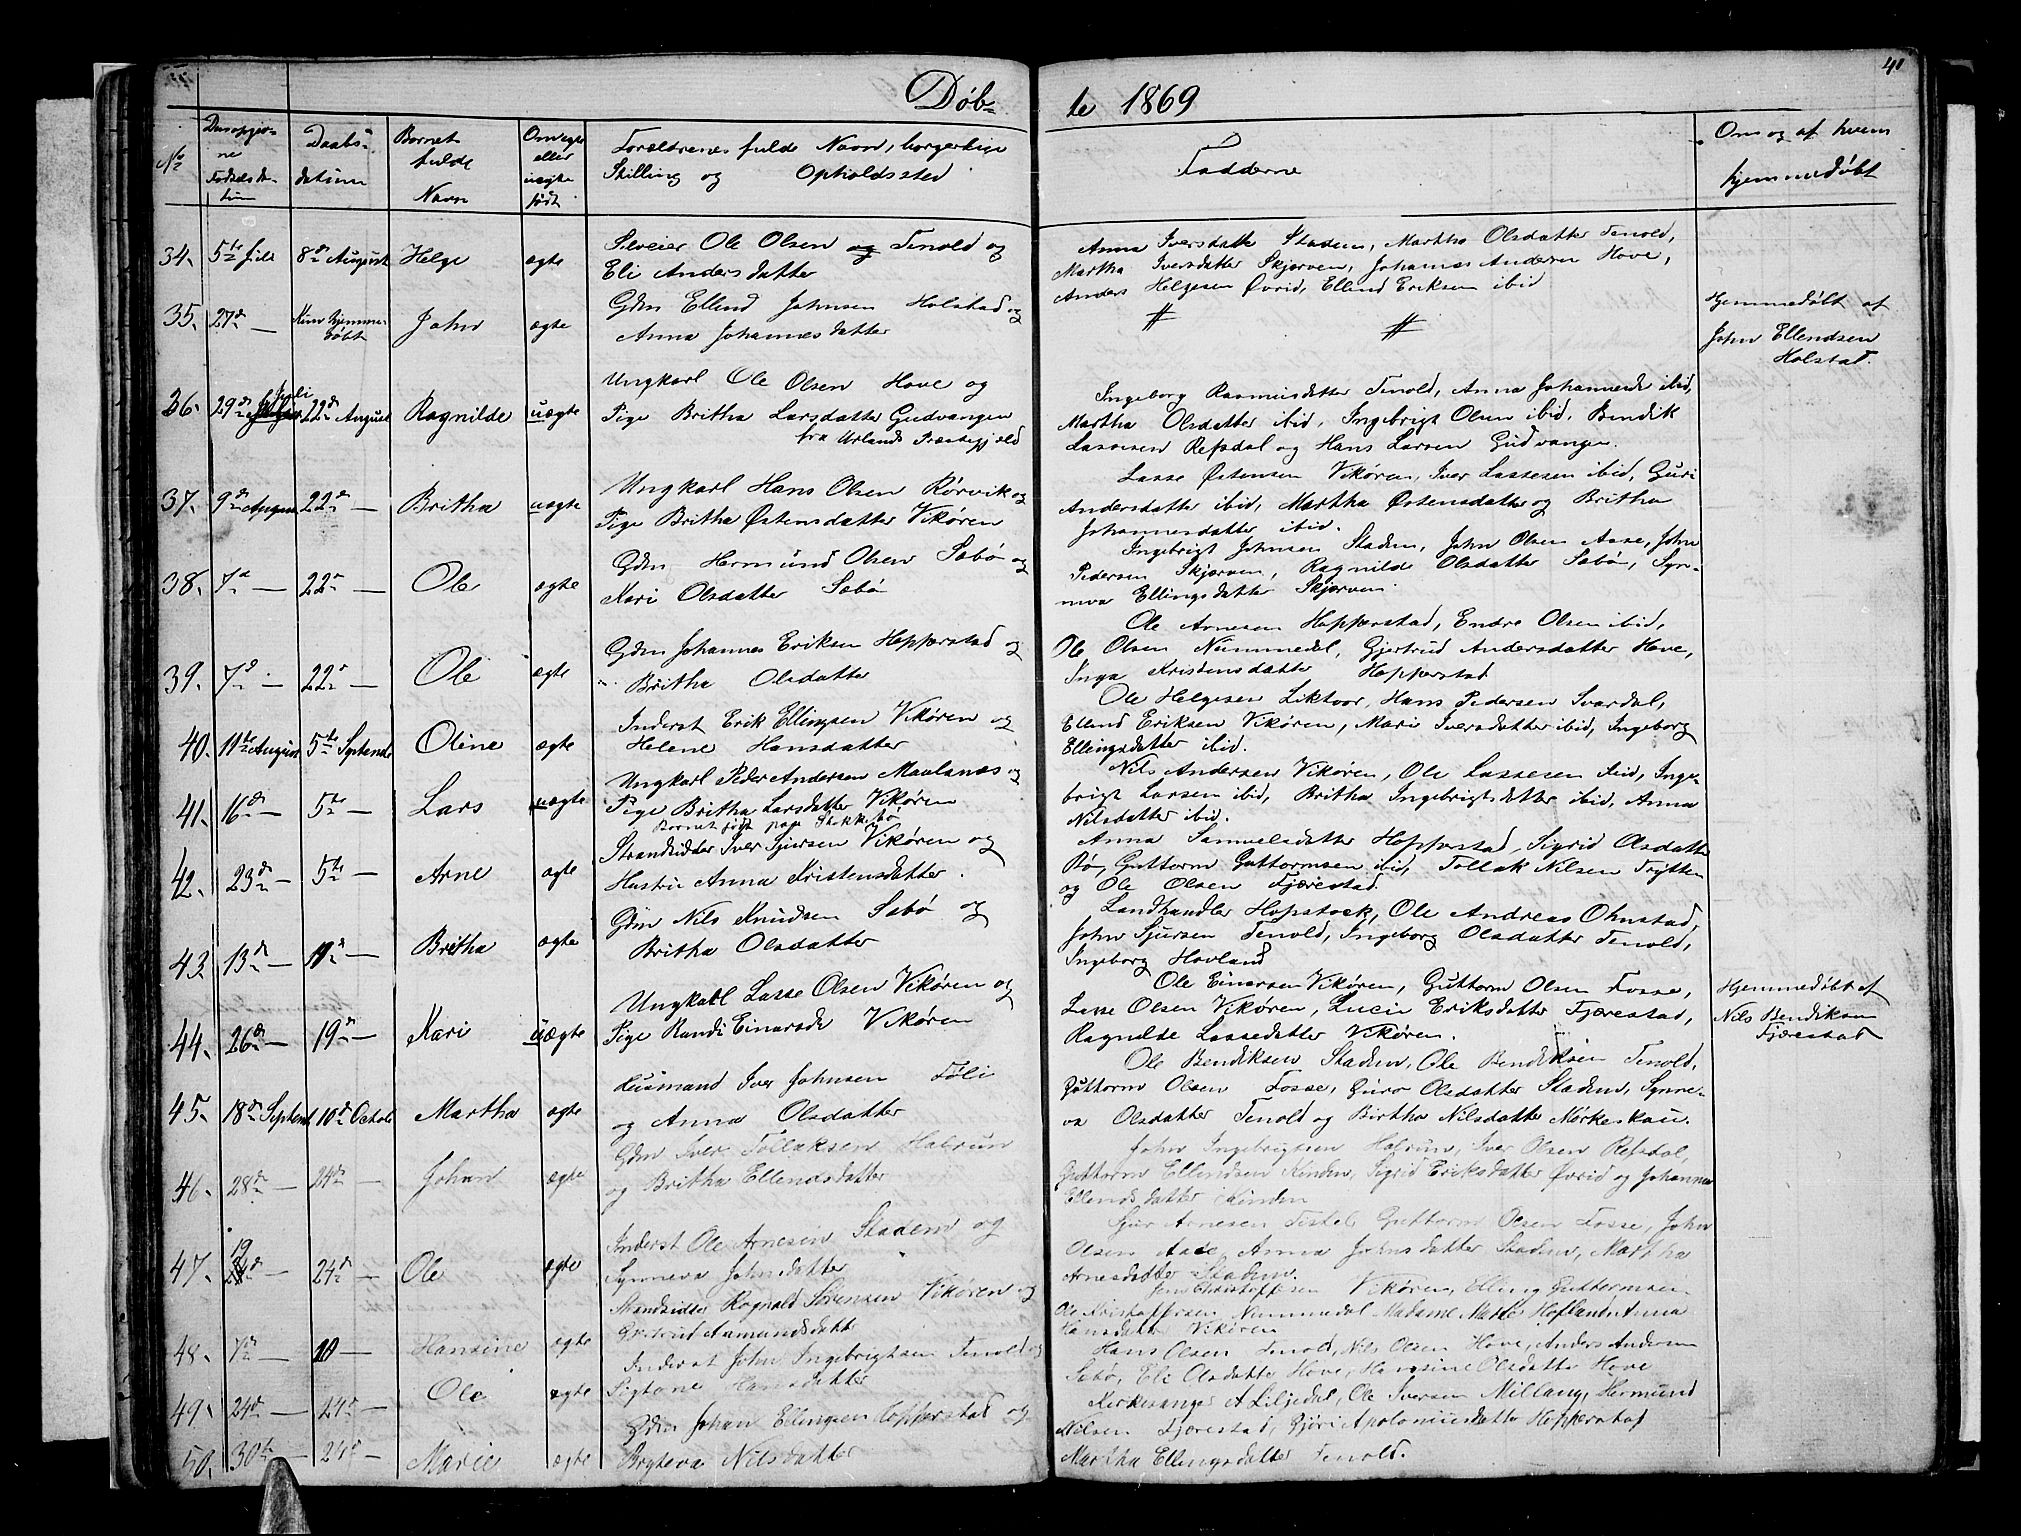 40
Døb- te 1869
No
Den opgivne Fødselsdatum
Daabsdatum
Barnets fulde Navn
Om ægte eller uægte født
Forældrenes fulde Navn, borgerlige Stilling og Opholdssted
Fadderne
Om og af hvem hjemmedøbt
34. 5te Juli 8de August Helge ægte
Ole Olsen og Tenold og
Eli Andersdatter
Anna Iversdatter Staden, Martha Olsdatter Tenold,
Martha Iversdatter Skjørven, Johannes Andersen Hove,
Anders Helgesen Øvrid, Ellend Eriksen ibid
35. 27de — Kun hjemmedøbt John ægte
Gdm Ellend Johnsen Holstad og
Anna Johannesdatter
# #
Hjemmedøbt af
John Ellendsen
Holstad.
36. 29de Juli 22de August Ragnilde uægte
Ungkarl Ole Olsen Hove og
Pige Britha Larsdatter Gudvangen
fra Urlands Præstegjæld
Ingeborg Rasmusdatter Tenold, Anna Johannesd. ibid,
Martha Olsdatter ibid, Ingebrigt Olsen ibid, Bendik
Lassesen Refsdal og Hans Larsen Gudvangen.
37. 9de August 22de — Britha uægte
Ungkarl Hans Olsen Rørvik og
Pige Britha Østensdatter Vikøren
Lasse Østensen Vikøren, Iver Lassesen ibid, Guri
Andersdatter ibid, Martha Østensdatter og Britha
Johannesdatter ibid.
38. 7de — 22de — Ole ægte
Gdm Hermund Olsen Sæbø og
Kari Olsdatter Sæbø
Ingebrigt Johnsen Staden, John Olsen Aase, John
Pedersen Skjørven, Ragnilde Olsdatter Sæbø, Syn-
neva Ellingsdatter Skjørven.
39. 7de — 22de — Ole ægte
Gdm Johannes Eriksen Hopperstad og
Britha Olsdatter
Ole Arnesen Hopperstad, Endre Olsen ibid,
Ole Olsen Nummedal, Gjertrud Andersdatter Hove,
Inga Kristensdatter Hopperstad
40. 11te August 5te Septemb Oline ægte
Inderst Erik Ellingsen Vikøren og
Helene Hansdatter
Ole Helgesen Liktvor, Hans Pedersen Svardal,
Ellend Eriksen Vikøren, Mari Iversdatter ibid, Ingeborg
Ellingsdatter ibid.
41. 16de — 5te — Lars uægte
Ungkarl Peder Andersen Maulanæs og
Pige Britha Larsdatter Vikøren
Barnet født paa Stokkebø
Nils Andersen Vikøren, Ole Lassesen ibid, Inge-
brigt Larsen ibid, Britha Ingebrigtsdatter ibid, Anna
Nilsdatter ibid.
42. 23de — 5te — Arne ægte
Strandsidder Iver Sjursen Vikøren og
Hustru Anna Kristensdatter.
Anna Samuelsdatter Hopperstad, Sigrid Olsdatter
Bø, Guttorm Guttormsen ibid, Tollak Nilsen Trytten
og Ole Olsen Fjærestad.
43 13de — 19de — Britha ægte
Gdm Nils Knudsen Sæbø og
Britha Olsdatter
Landhandler Hopstock, Ole Andreas Ohnstad,
John Sjursen Tenold, Ingeborg Olsdatter Tenold,
Ingeborg Hovland
44. 26de — 19de — Kari uægte
Ungkarl Lasse Olsen Vikøren og
Pige Randi Einarsd. Vikøren
Ole Einarsen Vikøren, Guttorm Olsen Fosse,
Lasse Olsen Vikøren, Lucie Eriksdatter Fjærestad,
Ragnilde Lassedatter Vikøren.
Hjemmedøbt af
Nils Bendiksen
Fjærestad
45. 18de Septemb 10de Octob Martha ægte
Husmand Iver Johnsen Føli
og Anna Olsdatter
Ole Bendiksen Staden, Ole Bendiksen Tenold,
Guttorm Olsen Fosse, Guro Olsdatter Staden, Synne-
va Olsdatter Tenold og Birtha Nilsdatter Mørkeskau.
46. 28de — 24de — Johan ægte
Gdm Iver Tollaksen Halrun
og Britha Ellendsdatter
John Ingebrigtsen Halrun, Iver Olsen Refsdal,
Guttorm Ellendsen Kinden, Sigrid Eriksdatter Øvrid og Johanna
Ellendsdatter Kinden
47. 19 24de — Ole ægte
Inderst Ole Arnesen Staden og
Synneva Johnsdatter
Sjur Arnesen Tistel, Guttorm Olsen Fosse, John
Olsen Aase, Anna Johnsdatter Staden, Martha
Arnesdatter Staden.
48. 7de — 10 — Hansine ægte
Strandsidder Rognald Sørensen Vikøren og
Gertrud Aamundsdatter
Jens Christoffersen Vikøren, Elling Guttormsen
Ole Kristoffersen Nummedal Madame Marte Hofland, Anna
Hansdatter Vikøren
49. 24de — 24de — Ole ægte
Inderst John Ingebrigtsen Tenold og
Sigtone Hansdatter
Hans Olsen Tenold, Nils Olsen Hove, Anders Andersen
Sæbø, Eli Olsdatter Hove, Hansine Olsdatter Hove
50. 30te — 24de — Marie ægte
Gdm Johan Ellingsen Hopperstad og
Bryteva Nilsdatter
Kirkesanger A Liljedal, Ole Iversen Millang, Hermund
Nilsen Fjærestad, Gjøri Apoloniusdatter Hopperstad
Martha Ellingsdatter Tenold.